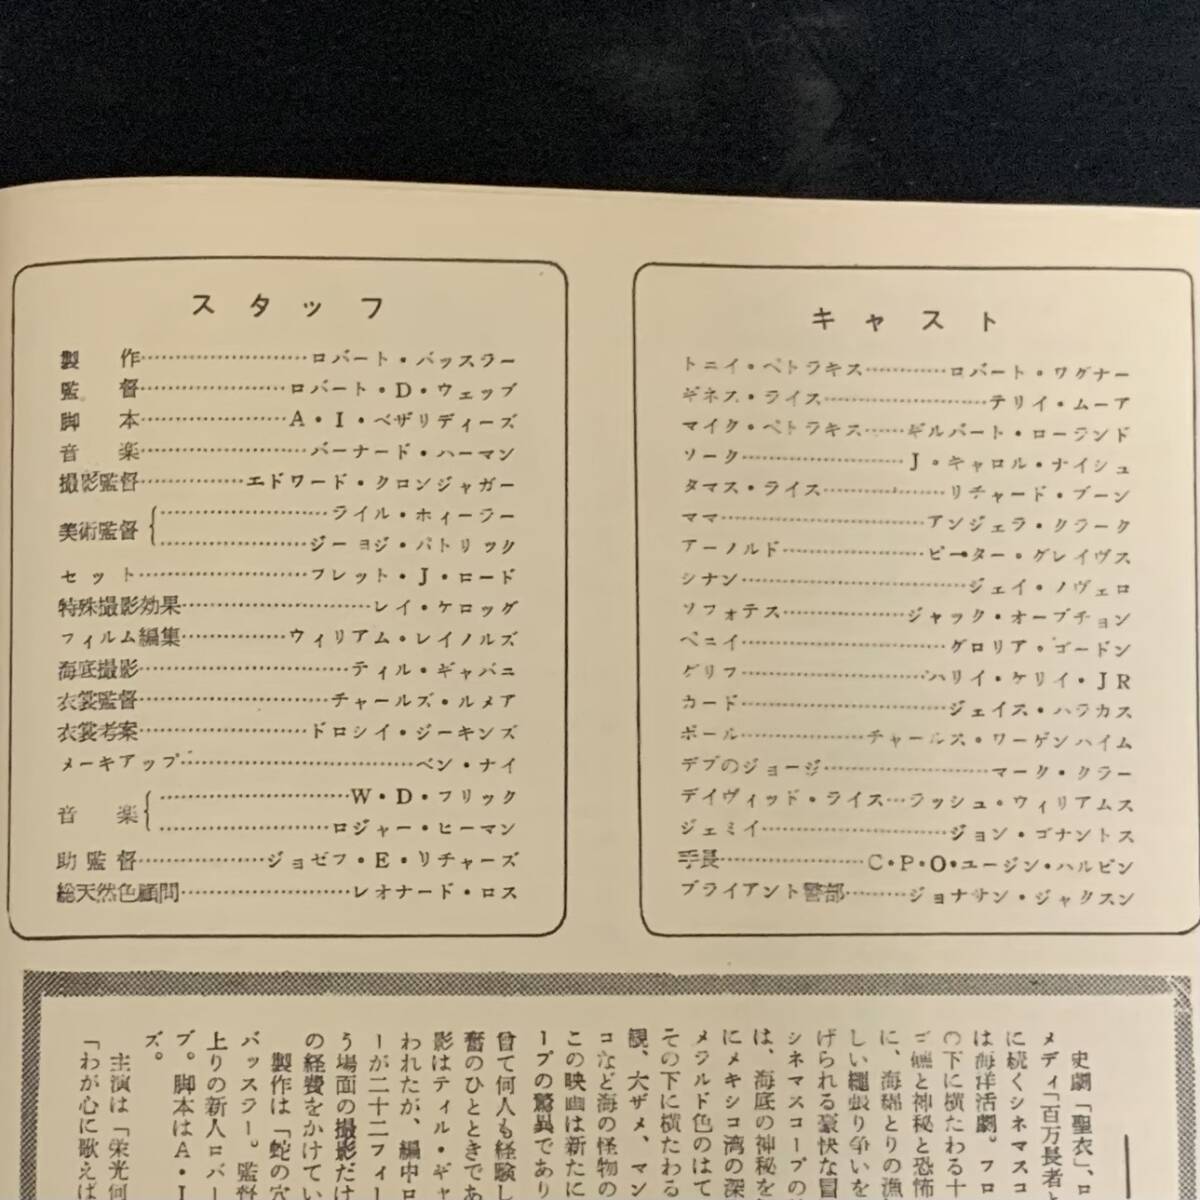 スタッフ
製作……………………ロバート・バッスラー
監督…………………ロバート・D・ウェッブ
脚本…………………A・I・ベザリディーズ
音楽……………………バーナード・ハーマン
撮影監督……………エドワード・クロンジャガー
美術監督
……………………ライル・ホィーラー
…………………ジーョジ・パトリック
セット……………………フレット・J・ロード
特殊撮影効果………………………レイ・ケロッグ
フィルム編集……………ウィリアム・レイノルズ
海底撮影…………………………ティル・ギャバニ
衣裳監督………………………チャールズ・ルメア
衣裳考案……………………ドロシイ・ジーキンズ
メーキアップ……………………………ベン・ナイ
音楽
………………………W・D・フリック
……………………ロジャー・ヒーマン
助監督………………ジョゼフ・E・リチャーズ
総天然色顧問……………………レオナード・ロス
キャスト
トニイ・ペトラキス…………ロバート・ワグナー
ギネス・ライス…………………テリイ・ムーア
マイク・ペトラキス……ギルバート・ローランド
ソーク……………………J・キャロル・ナイシュ
タマス・ライス………………リチャード・ブーン
ママ…………………………アンジェラ・クラーク
アーノルド…………………ピーター・グレイヴス
シナン……………………………ジェイ・ノヴェロ
ソフォテス………………ジャック・オープチョン
ペニイ…………………………グロリア・ゴードン
グリフ………………………ハリイ・ケリイ・JR
カード…………………………ジェイス・ハラカス
ポール………………チャールス・ワーゲンハイム
デブのジョージ……………………マーク・クラー
デイヴィッド・ライス…ラッシュ・ウィリアムス
ジェミイ………………………ジョン・ゴナントス
手長…………………C・P・O・ユージン・ハルピン
ブライアント警部………ジョナサン・ジャクスン
史劇「聖衣」、ロ
メディ「百万長者と
に続くシネマスコ
は海洋活劇。フロ
の下に横たわる十
と神秘と恐怖
に、海綿とりの漁
しい縄張り争いを
げられる豪快な冒
シネマスコープの
は、海底の神秘を
にメキシコ湾の深
メラルド色のはて
その下に横たわる
観、大ザメ、マン
コなど海の怪物の
この映画は新たに
ープの驚異であり
曾て何人も経験し
奮のひとときであ
影はティル・ギャ
われたが、編中ロ
ーが二十二フィー
う場面の撮影だけ
の経費をかけてい
製作は「蛇の穴
バッスラー。監督
上りの新人ロバー
ブ。脚本はA・I
ズ。
主演は「栄光何
「わが心に歌えば